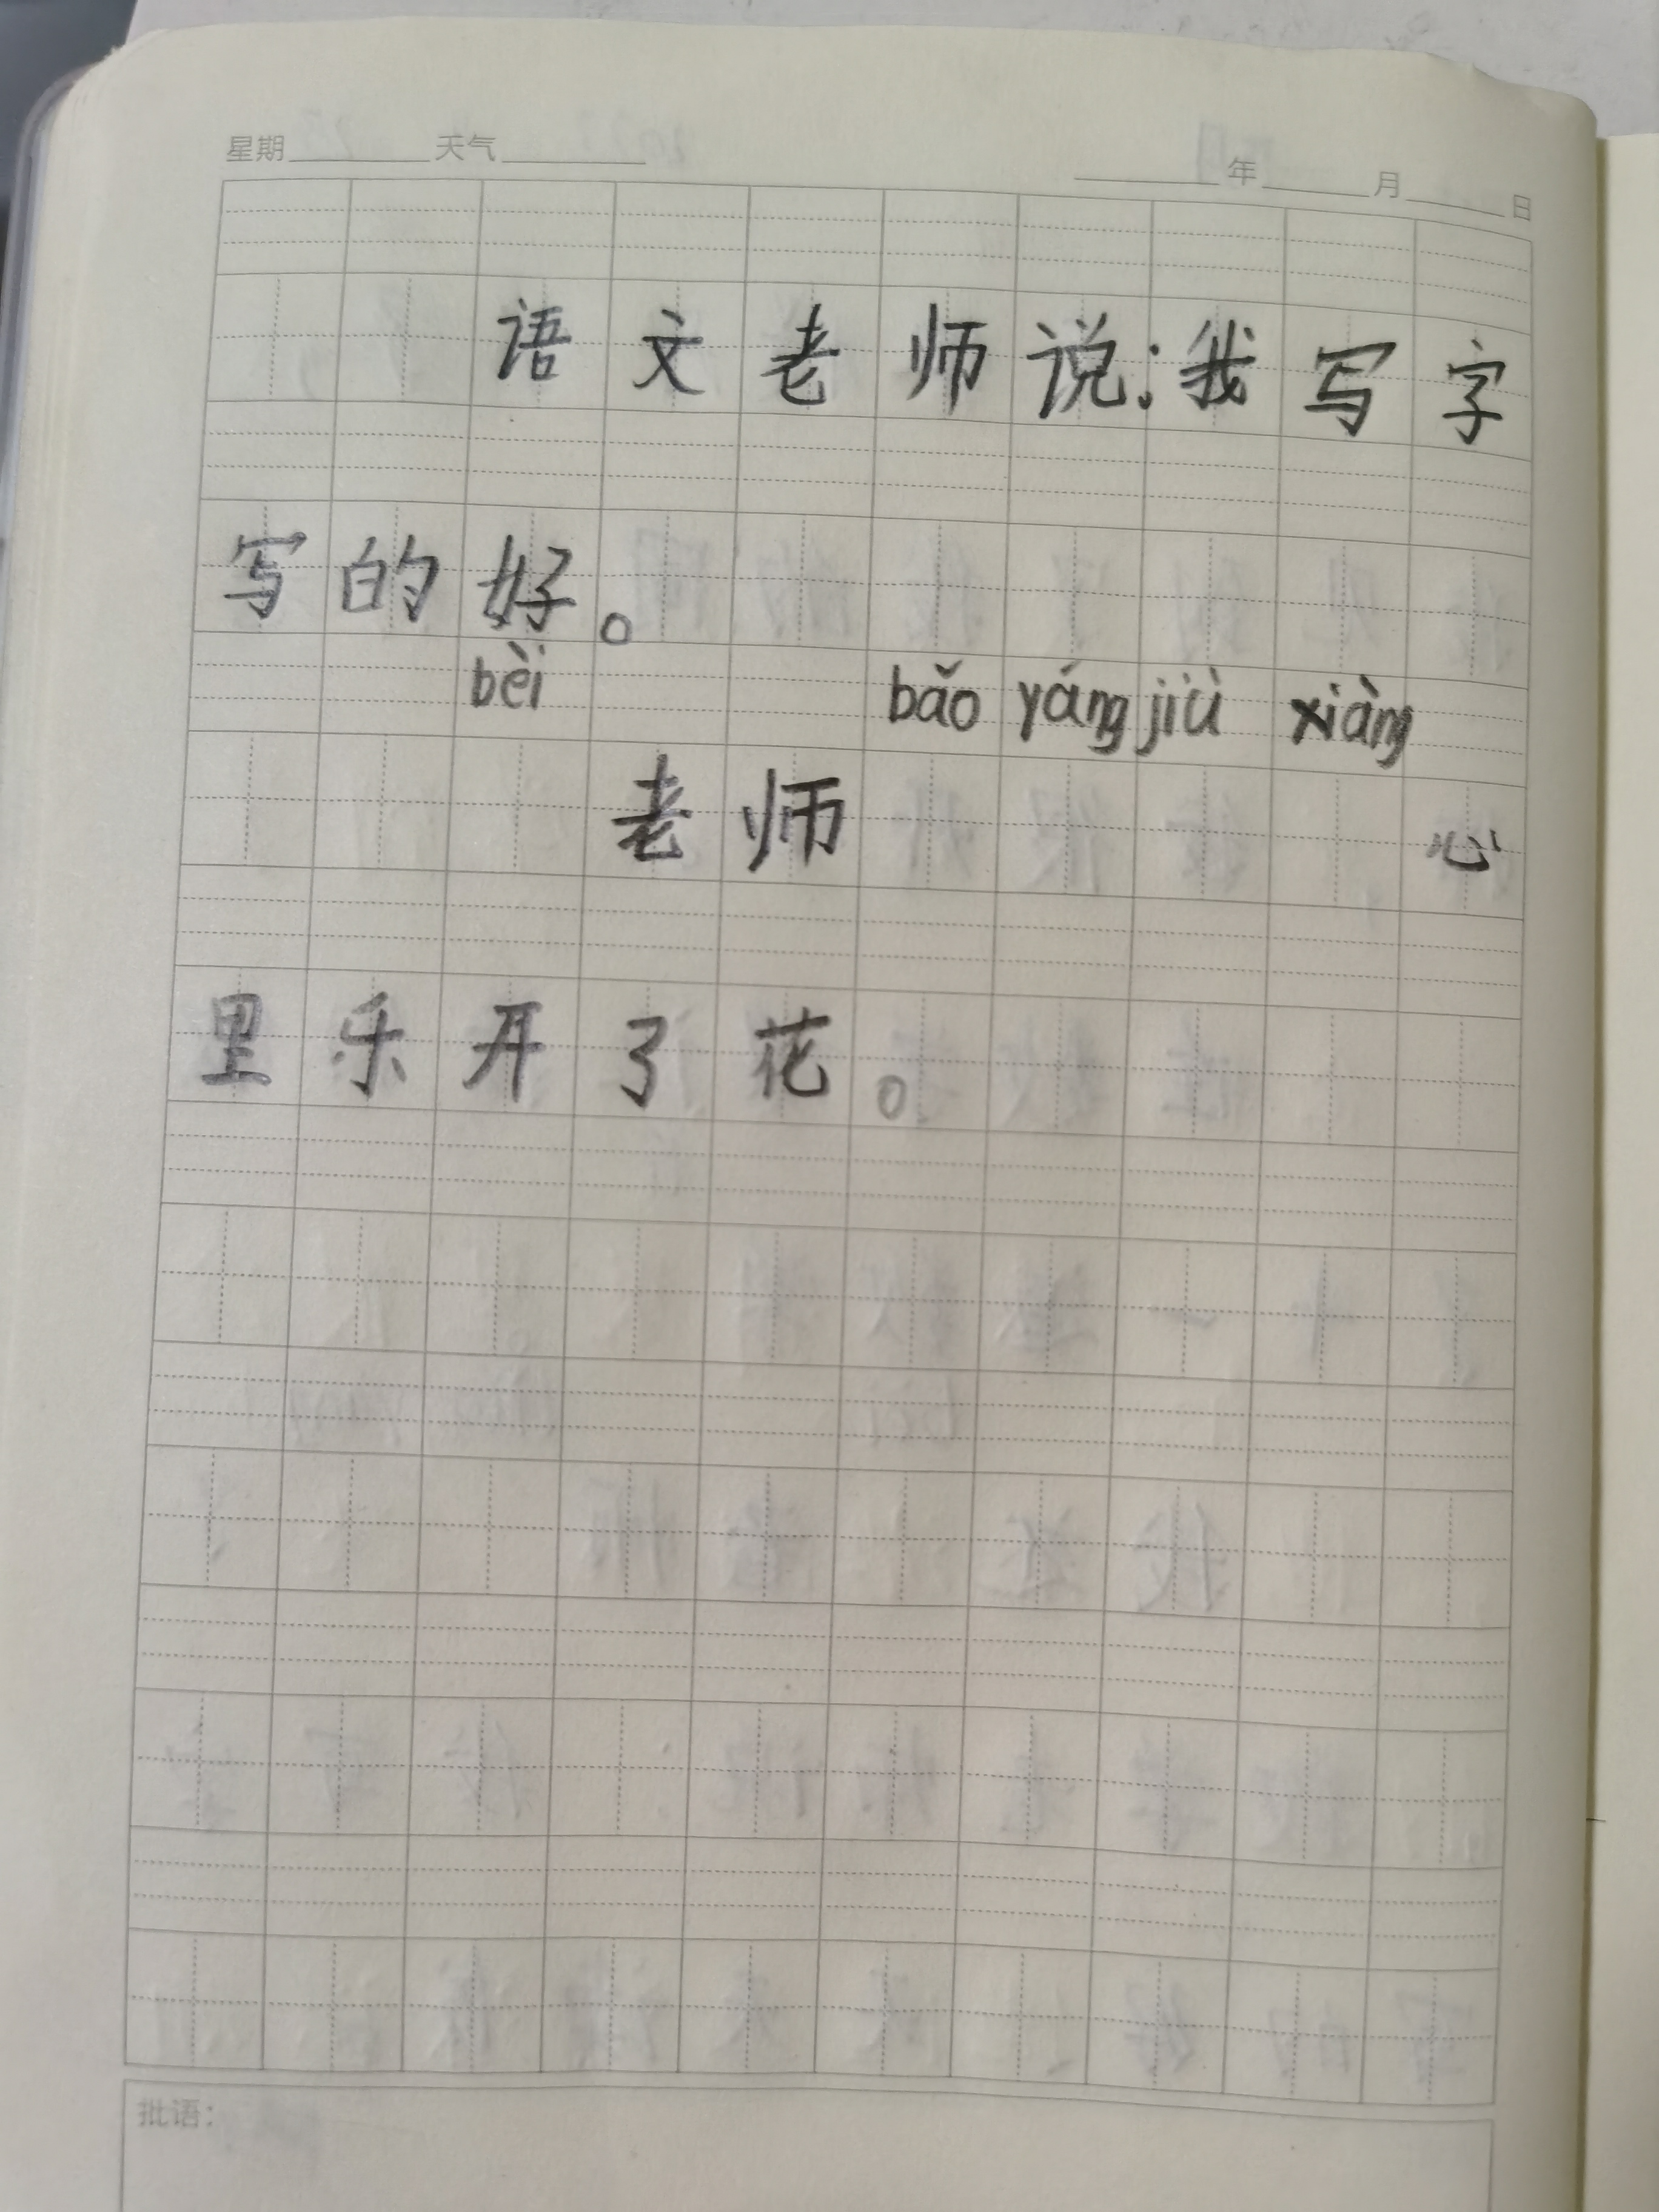 星期 天气 年 月 日
语文老师说:我写字
写的好。
bèi bǎo yáng jiù xiàng
老师 心
里乐开了花。
批语: